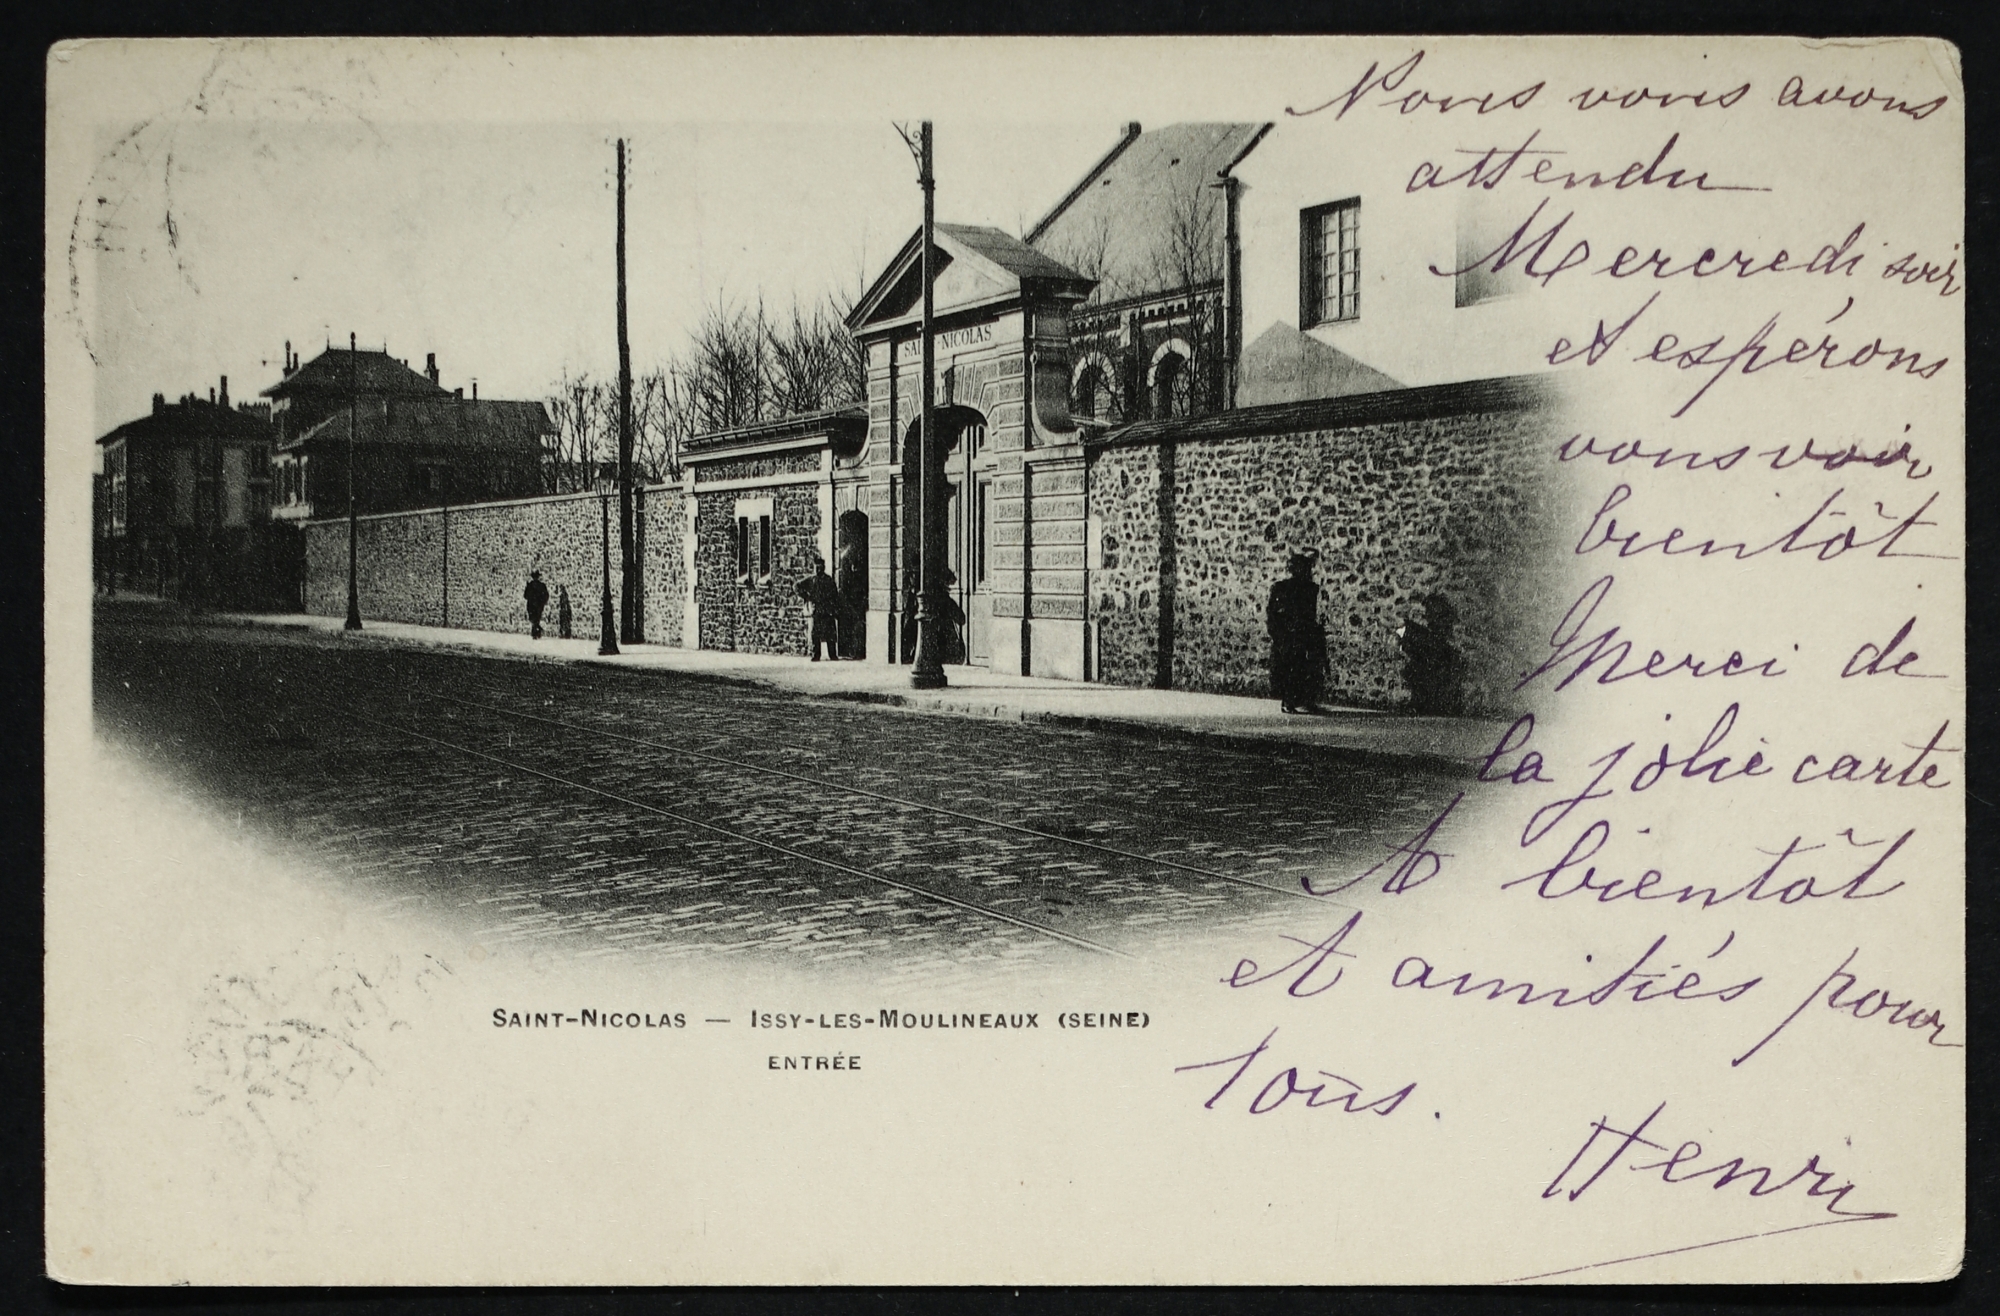 Nous vous avons
attendu
Mercredi soir
et espérons
vous voir
bientôt
Merci de
la jolie carte
A bientôt
et amitiés pour
tous.
Henri
SAINT-NICOLAS
SAINT-NICOLAS — ISSY-LES-MOULINEAUX (SEINE)
ENTRÉE